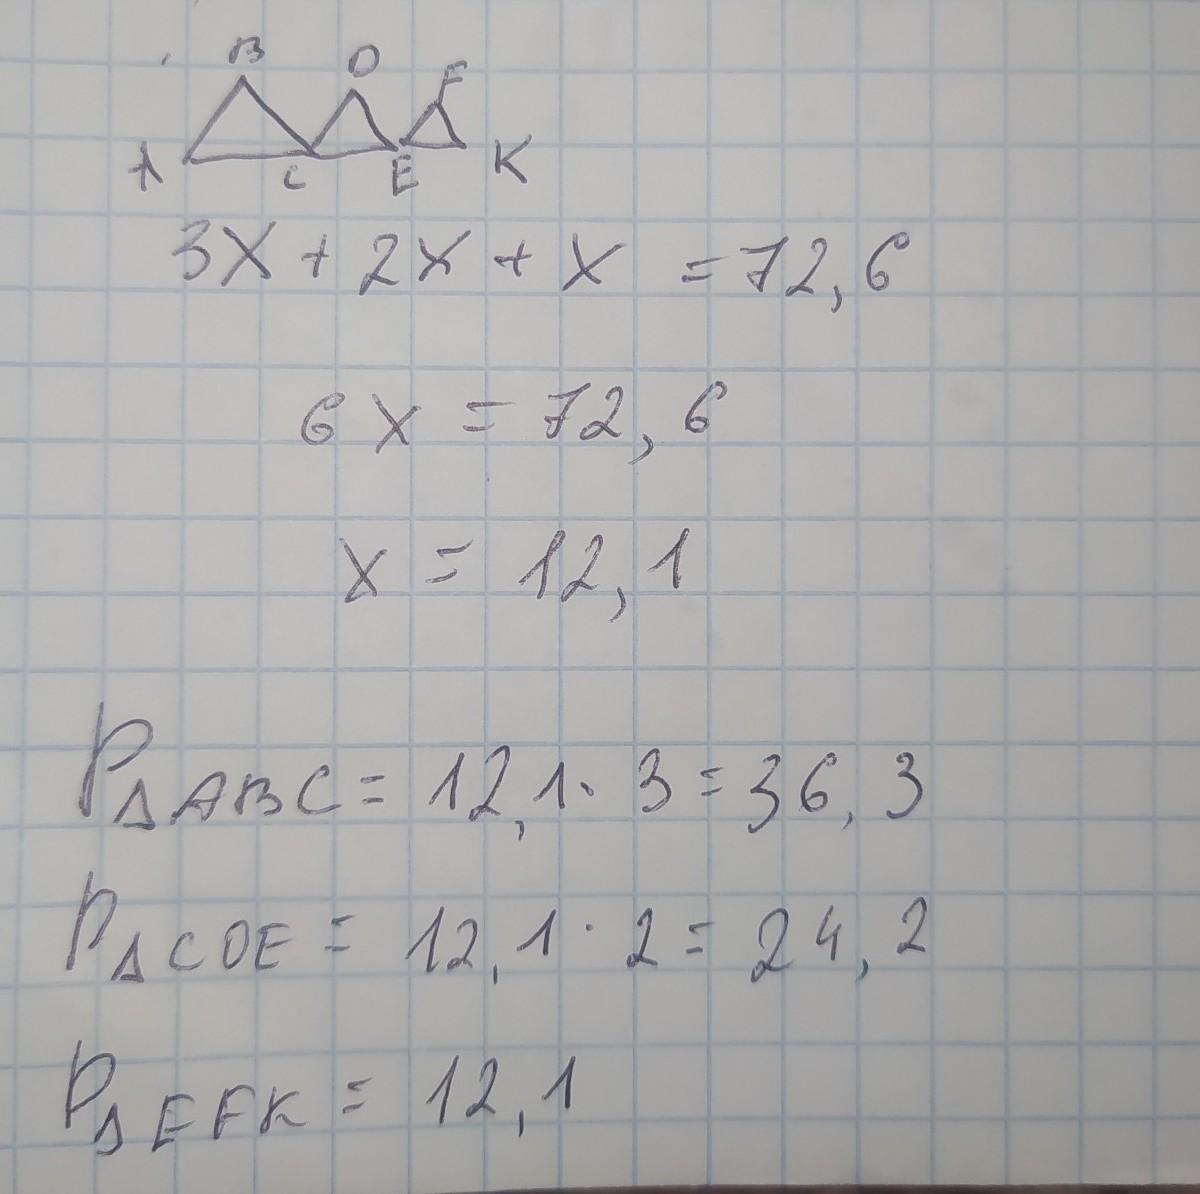 B D F
A C E K
3x + 2x + x = 72,6
6x = 72,6
x = 12,1
P△ABC = 12,1 · 3 = 36,3
P△CDE = 12,1 · 2 = 24,2
P△EFK = 12,1